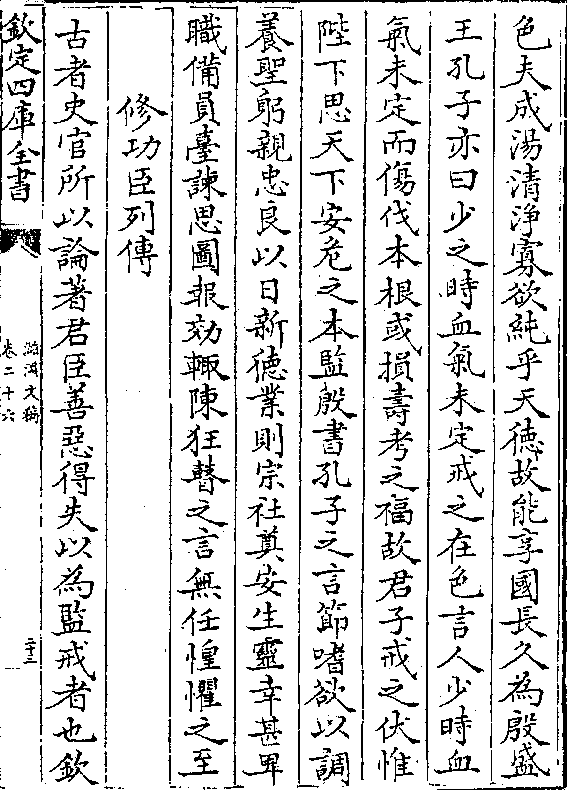 色夫成湯清淨寡欲純乎天德故能享國長久為殷盛
王孔子亦曰少之時血氣未定戒之在色言人少時血
氣未定而傷伐本根或損壽考之福故君子戒之伏惟
陛下思天下安危之本監殷書孔子之言節嗜欲以調
養聖躬親忠良以日新德業則宗社奠安生靈幸甚畢
職備員臺諫思圖報効輙陳狂瞽之言無任惶懼之至
修功臣列傳
古者史官所以論著君臣善惡得失以為監戒者也欽
欽定四庫全書
滋溪文稿
卷二十六
二十三